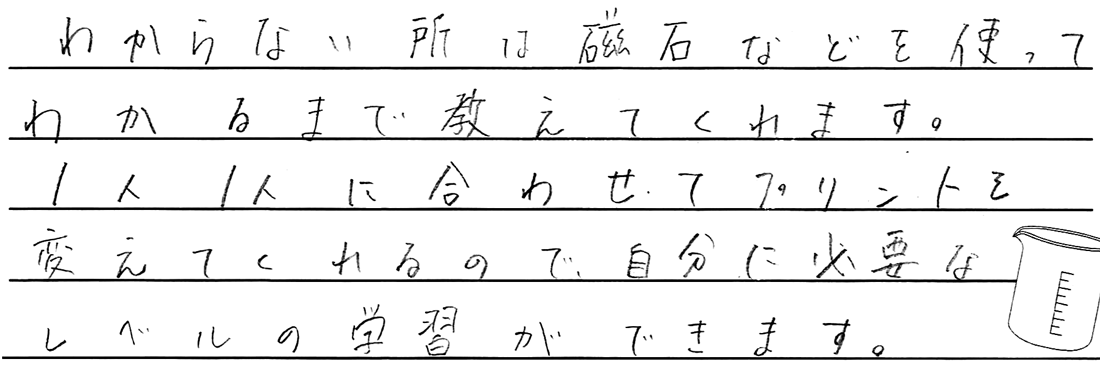 わからない所は磁石などを使って
わかるまで教えてくれます。
1人1人に合わせてプリントを
変えてくれるので、自分に必要な
レベルの学習ができます。